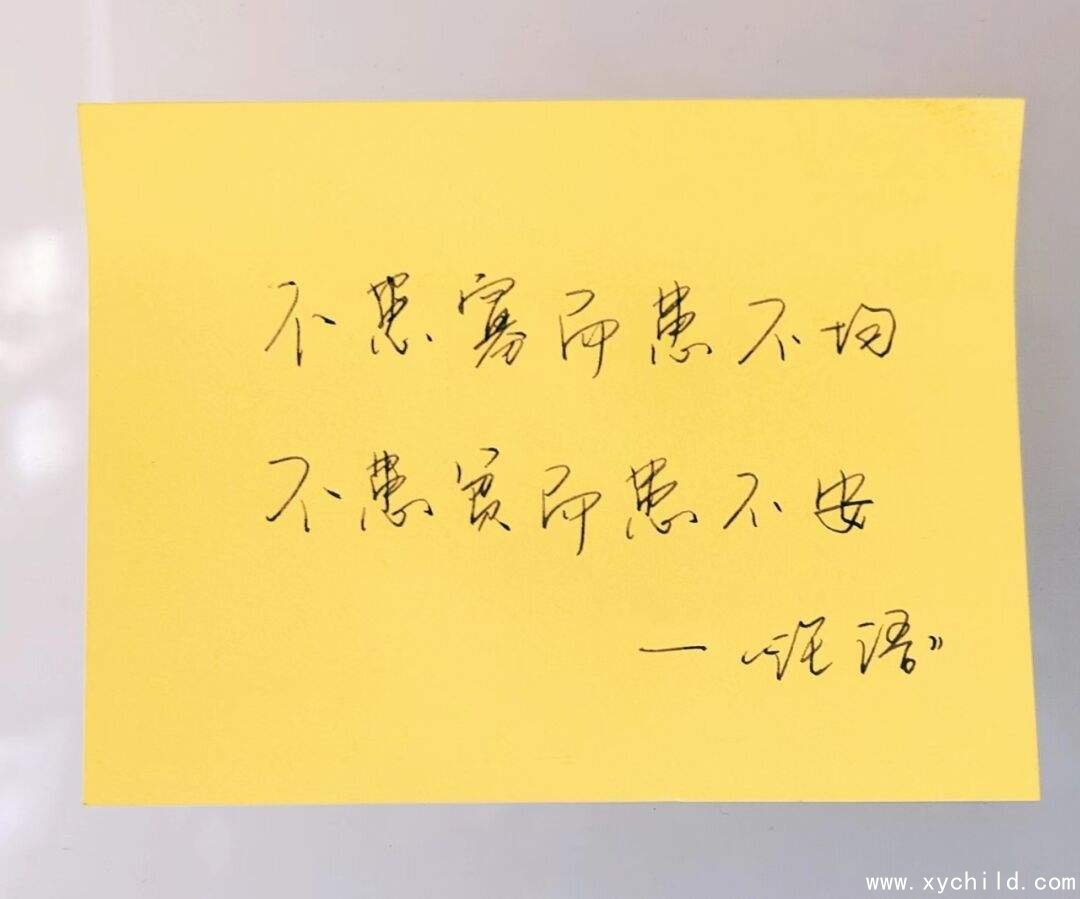 不患寡而患不均
不患贫而患不安
—《论语》
www.xychild.com